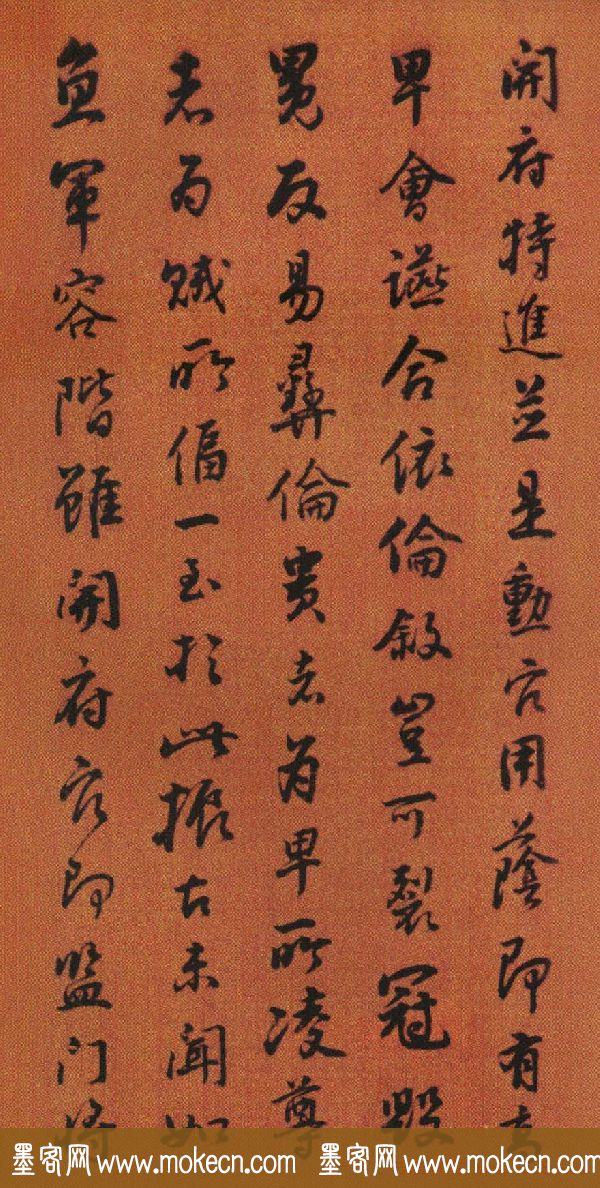 開府特進並是勳官用蔭即有高
卑會讌合依倫敘豈可裂冠毀
冕反易彝倫貴者為卑所凌尊
者為賊所偪一至於此振古未聞如
魚軍容階雖開府官即監門將
墨客网 www.mokecn.com 墨客网 www.mokecn.com